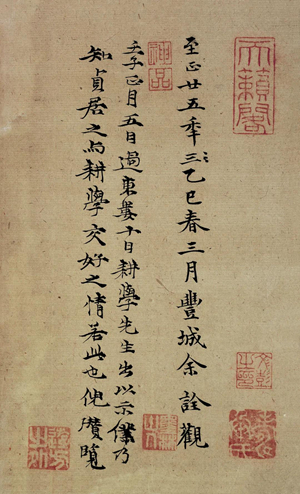 天籟閣
神品
至正廿五年三乙巳春三月豐城余詮觀
壬子正月五日過東婁十日耕學先生出以示僕乃
知貞居之与耕學交好之情若此也倪瓚覽